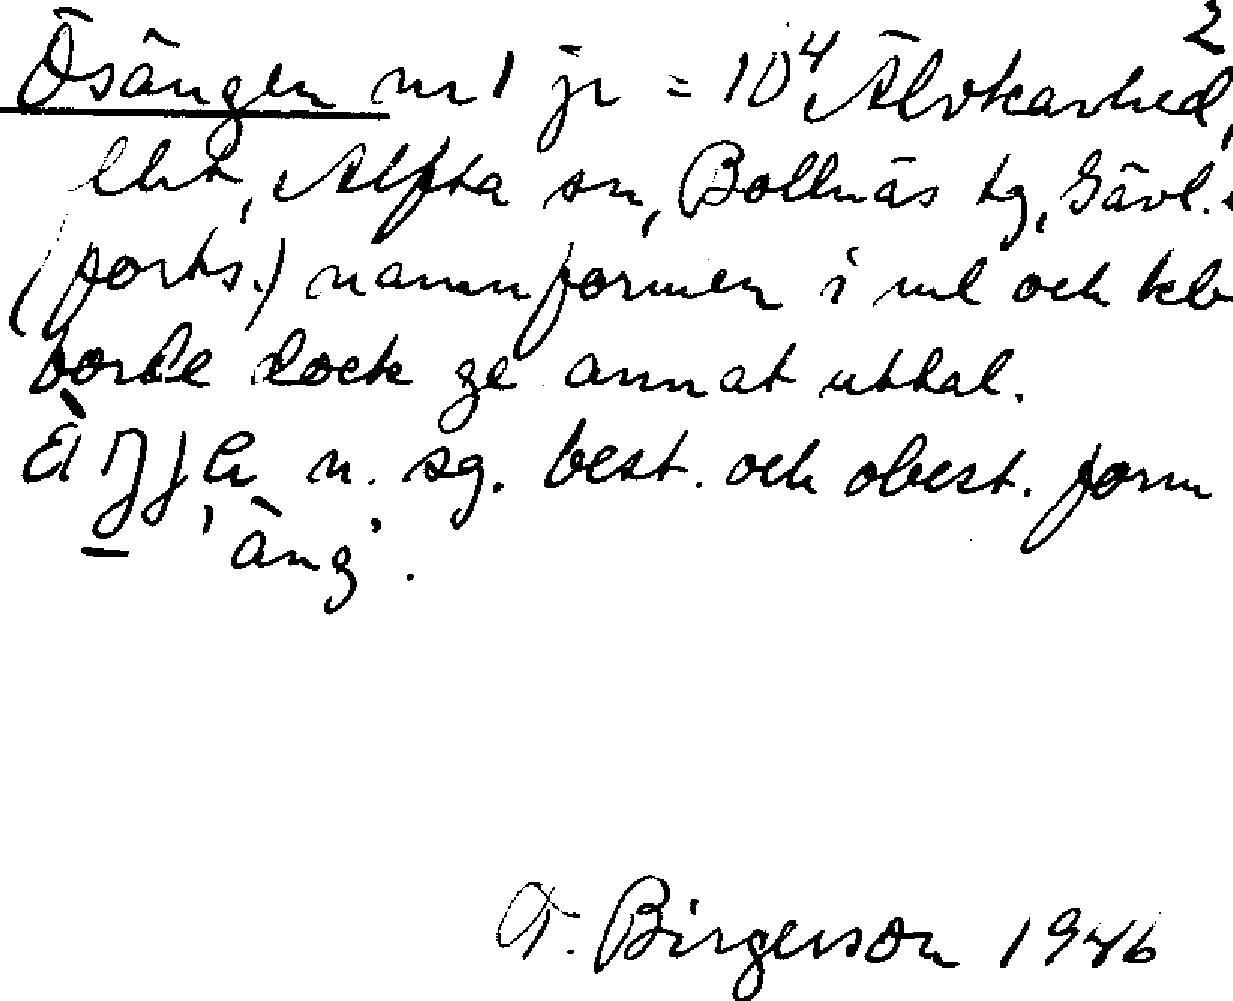 2
Ösängen nr 1 jr = 10⁴ Älvkarhed,
lht, Alfta sn, Bollnäs tg, Gävl.
(forts.) namnformen i ml och kb
borde dock ge annat uttal.
n. sg. best. och obest. form
'äng'.
T. Birgerson 1946